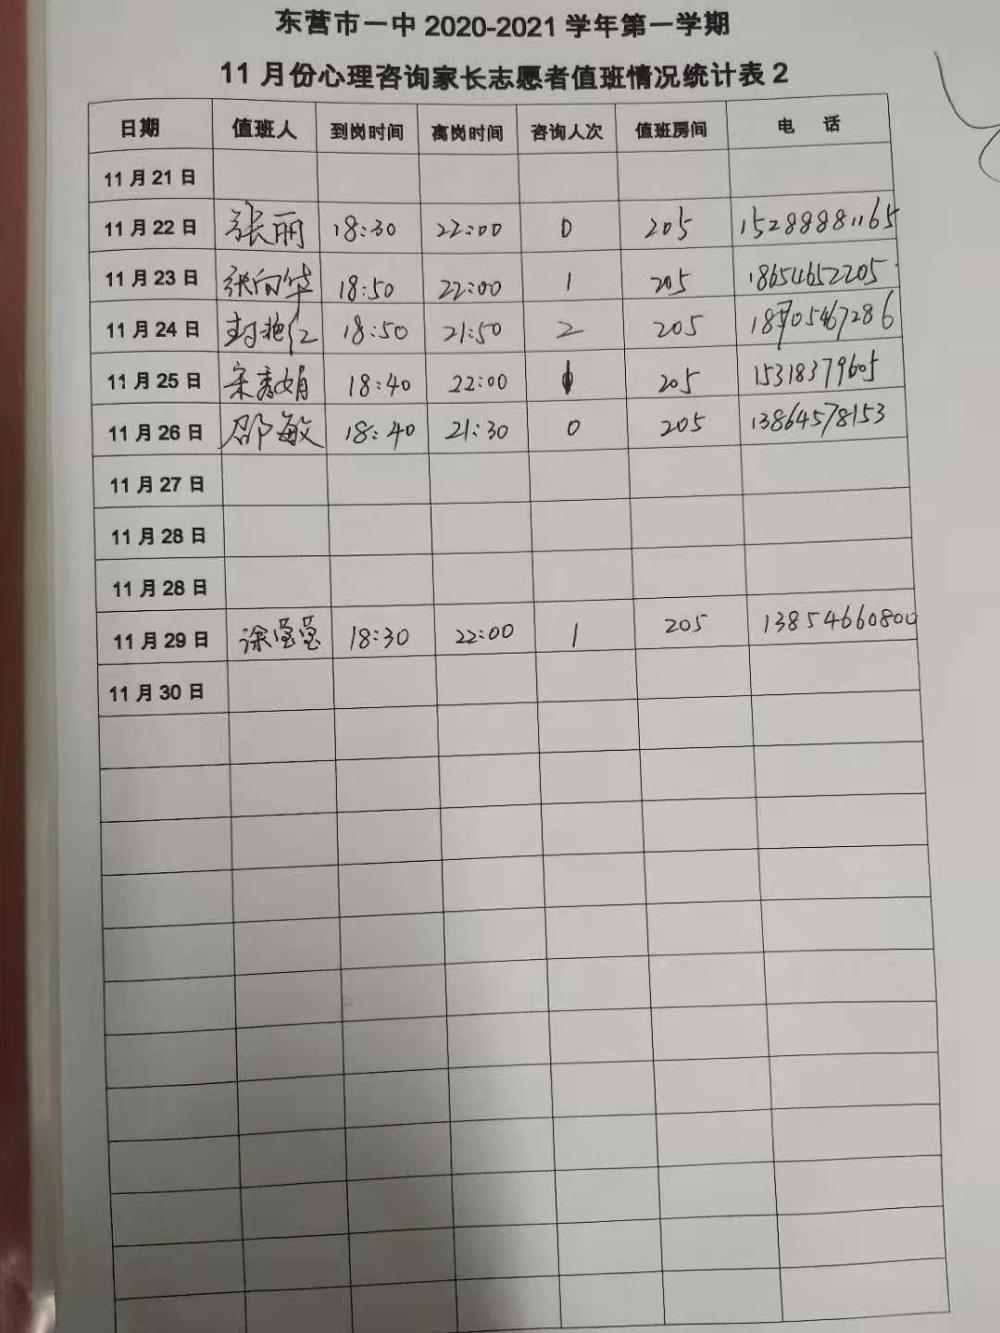 东营市一中 2020-2021 学年第一学期
11 月份心理咨询家长志愿者值班情况统计表 2
日期 值班人 到岗时间 离岗时间 咨询人次 值班房间 电 话
11 月 21 日
11 月 22 日 张丽 18:30 22:00 0 205 15288881165
11 月 23 日 张向华 18:50 22:00 1 205 18654652205
11 月 24 日 18:50 21:50 2 205 18705467286
11 月 25 日 宋秀娟 18:40 22:00 205 15318379605
11 月 26 日 邵敏 18:40 21:30 0 205 13864578153
11 月 27 日
11 月 28 日
11 月 28 日
11 月 29 日 徐莹莹 18:30 22:00 1 205 13854660800
11 月 30 日